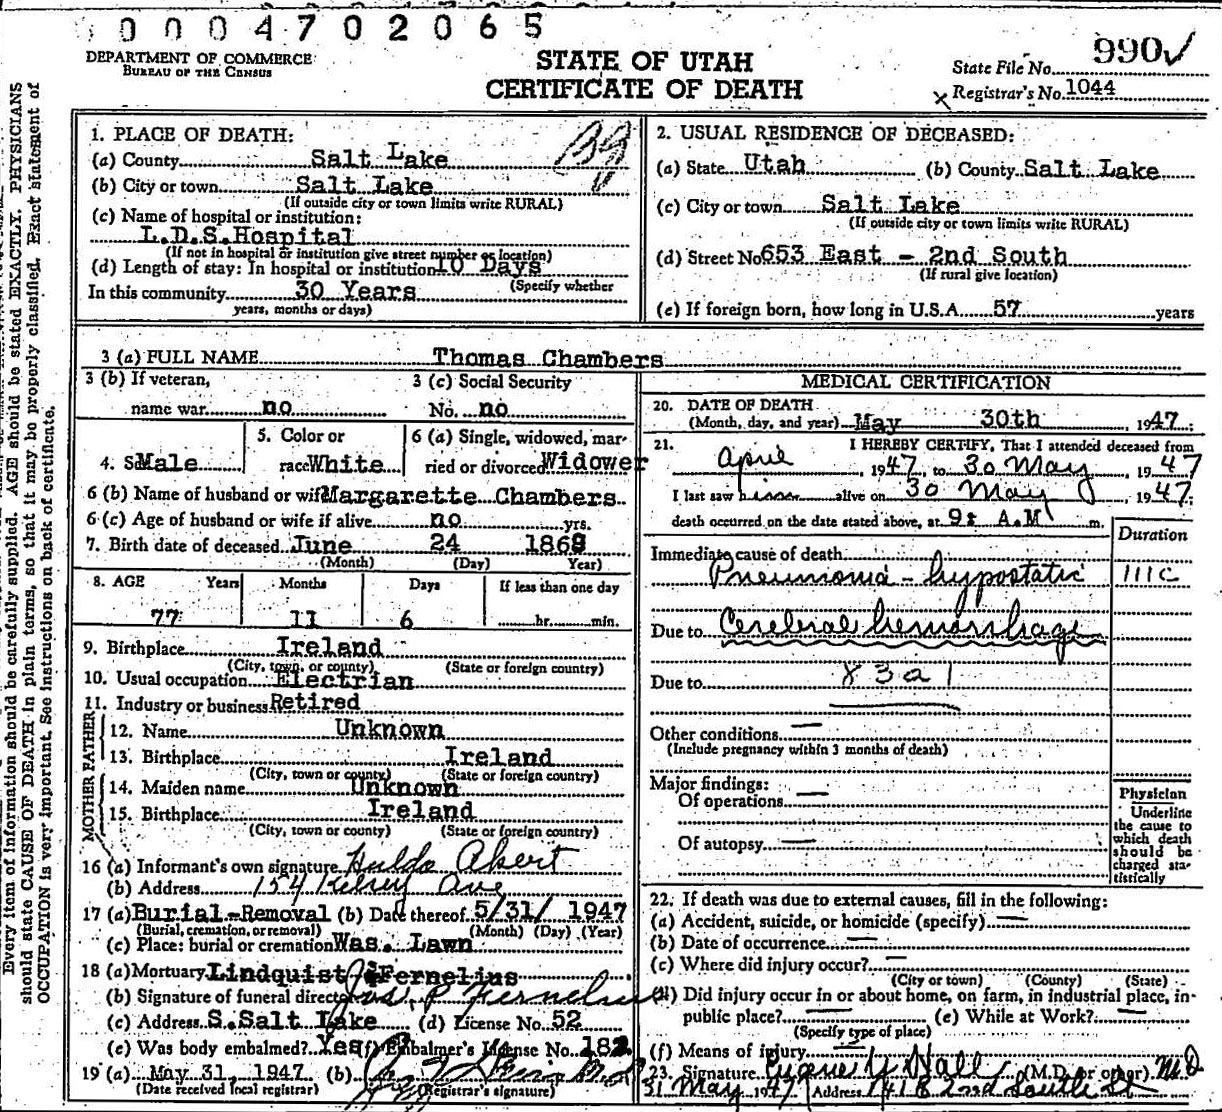 0004702065
DEPARTMENT OF COMMERCE
BUREAU OF THE CENSUS
STATE OF UTAH
CERTIFICATE OF DEATH
State File No. 990
X Registrar's No. 1044
Every item of information should be carefully supplied. AGE should be stated EXACTLY. PHYSICIANS
should state CAUSE OF DEATH in plain terms, so that it may be properly classified. Exact statement of
OCCUPATION is very important. See instructions on back of certificate.
1. PLACE OF DEATH:
(a) County Salt Lake
(b) City or town Salt Lake
(If outside city or town limits write RURAL)
(c) Name of hospital or institution:
L.D.S.Hospital
(If not in hospital or institution give street number or location)
(d) Length of stay: In hospital or institution 10 Days
(Specify whether
In this community 30 Years
years, months or days)
2. USUAL RESIDENCE OF DECEASED:
(a) State Utah (b) County Salt Lake
(c) City or town Salt Lake
(If outside city or town limits write RURAL)
(d) Street No 653 East - 2nd South
(If rural give location)
(e) If foreign born, how long in U.S.A 57 years
3 (a) FULL NAME Thomas Chambers
3 (b) If veteran,
name war no
3 (c) Social Security
No. no
4. Sex Male
5. Color or
race White
6 (a) Single, widowed, mar-
ried or divorced Widower
6 (b) Name of husband or wife Margarette Chambers
6 (c) Age of husband or wife if alive no yrs.
7. Birth date of deceased June 24
(Month) (Day) Year)
8. AGE Years Months Days If less than one day
77 11 6 hr. min.
9. Birthplace Ireland
(City, town, or county) (State or foreign country)
10. Usual occupation Electrian
11. Industry or business Retired
FATHER
12. Name Unknown
13. Birthplace Ireland
(City, town or county) (State or foreign country)
MOTHER
14. Maiden name Unknown
15. Birthplace Ireland
(City, town or county) (State or foreign country)
16 (a) Informant's own signature Hulda Akert
(b) Address 154 Kelsey Ave
17 (a) Burial-Removal (b) Date thereof 5/31/ 1947
(Burial, cremation, or removal) (Month) (Day) (Year)
(c) Place: burial or cremation Was. Lawn
18 (a) Mortuary Lindquist & Fernelius
(b) Signature of funeral director Jos P. Fernelius
(c) Address S.Salt Lake (d) License No. 52
(e) Was body embalmed? Yes (f) Embalmer's License No. 182
19 (a) May 31, 1947 (b)
(Date received local registrar) (Registrar's signature)
MEDICAL CERTIFICATION
20. DATE OF DEATH
(Month, day, and year) May 30th, 1947
21. I HEREBY CERTIFY, That I attended deceased from
April, 1947, to 30 May, 1947
I last saw him alive on 30 May, 1947
death occurred on the date stated above, at 9: A.M m.
Duration
Immediate cause of death
Pneumonia - hypostatic 111c
Due to Cerebral hemorrhage
Due to 83a1
Other conditions —
(Include pregnancy within 3 months of death)
Major findings:
Of operations —
Of autopsy —
Physician
Underline
the cause to
which death
should be
charged sta-
tistically
22. If death was due to external causes, fill in the following:
(a) Accident, suicide, or homicide (specify) —
(b) Date of occurrence —
(c) Where did injury occur? —
(City or town) (County) (State)
(d) Did injury occur in or about home, on farm, in industrial place, in-
public place? — (e) While at Work? —
(Specify type of place)
(f) Means of injury —
23. Signature Eugene H Hall (M.D. or other) M.D
31 May 1947 Address 741 E 2nd South St